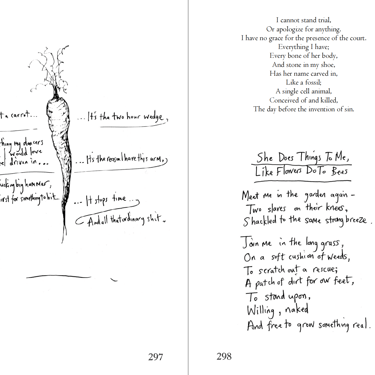 t a carrot...
... It's the two hour wedge,
thing my dancers
I would love
driven in...
big hammer,
for something to hit
... Its the reason I have this arm,
... It stops time ...
And all that ordinary shit.
297
I cannot stand trial,
Or apologize for anything.
I have no grace for the presence of the court.
Everything I have;
Every bone of her body,
And stone in my shoe,
Has her name carved in,
Like a fossil;
A single cell animal,
Conceived of and killed,
The day before the invention of sin.
She Does Things To Me,
Like Flowers Do To Bees
Meet me in the garden again –
Two slaves on their knees,
Shackled to the same strong breeze.
Join me in the long grass,
On a soft cushion of weeds,
To scratch out a rescue;
A patch of dirt for our feet,
To stand upon,
Willing, naked
And free to grow something real.
298